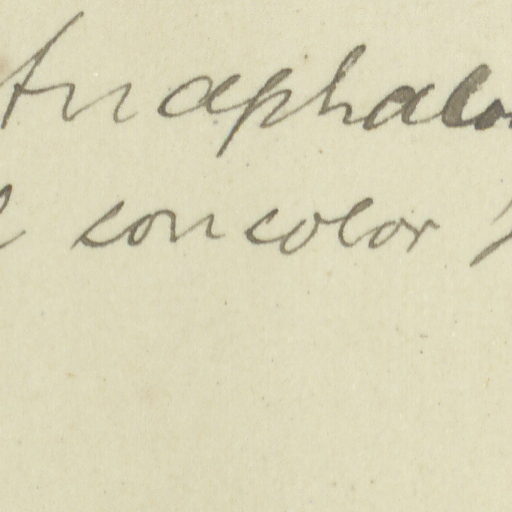 Anaphalo
concolor